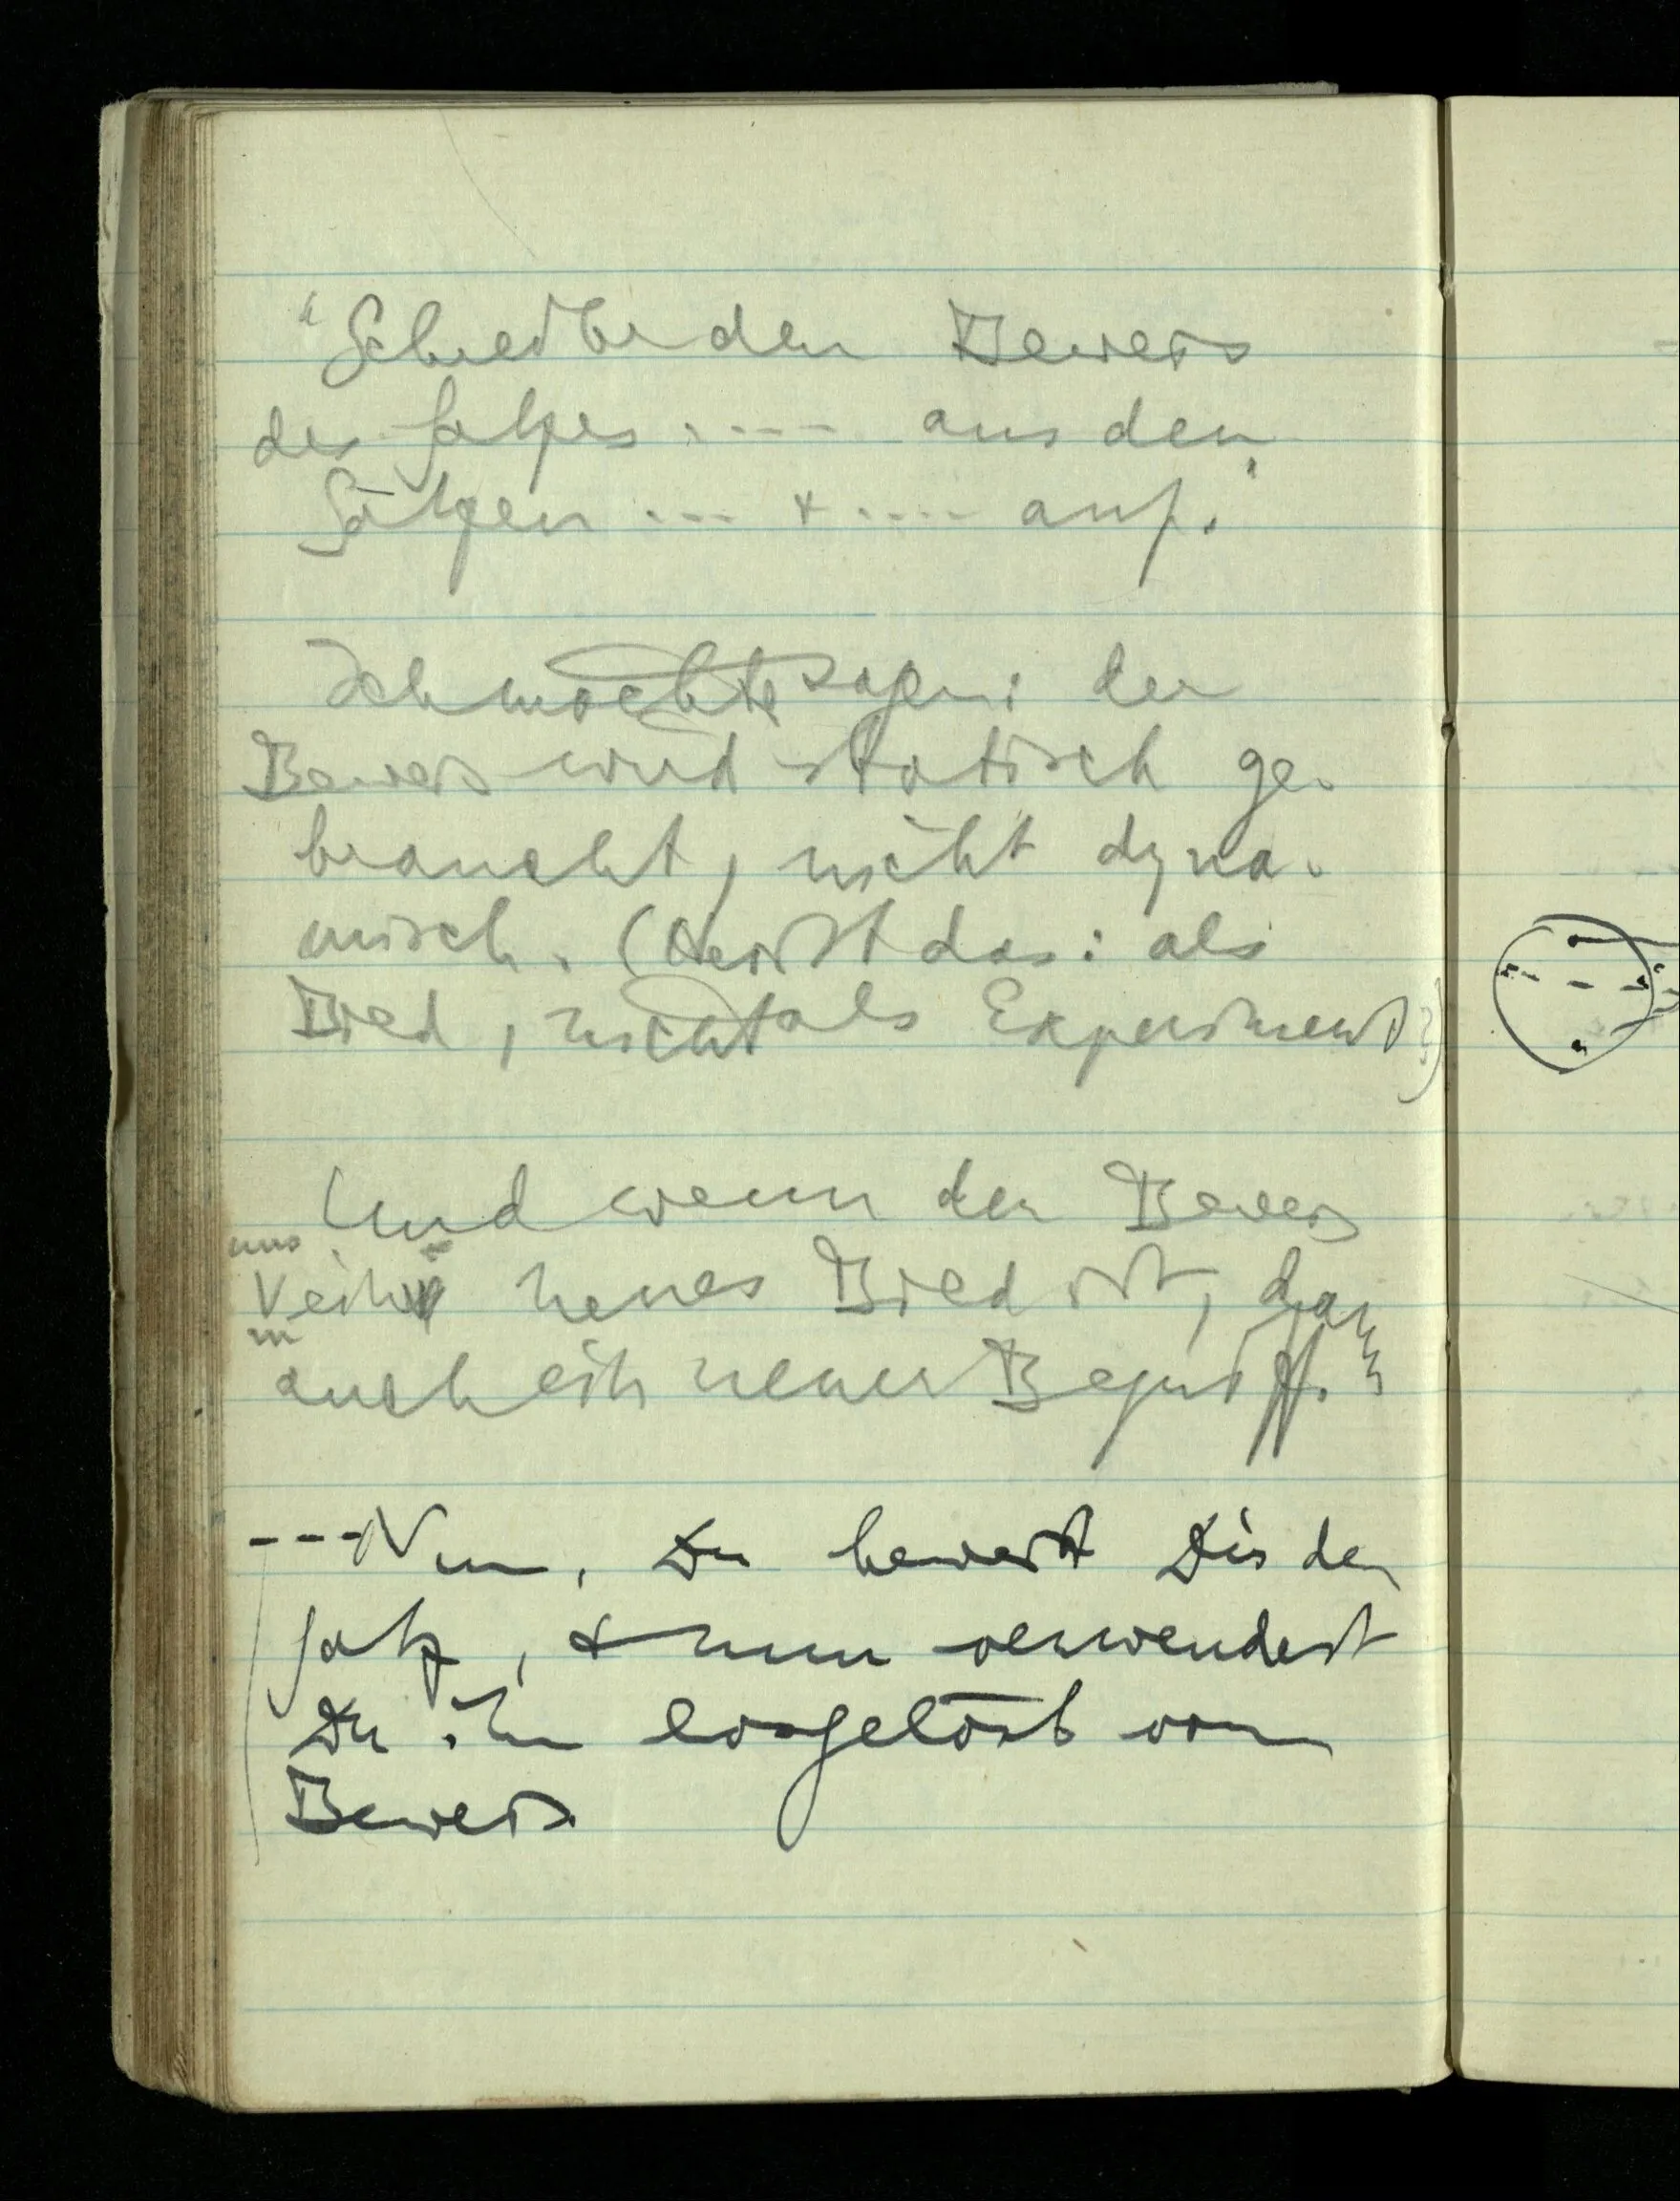 "Schreib den Beweis
des Satzes ..... aus den
Sätzen .... + ..... auf."
Ich möchte sagen: der
Beweis wird statisch ge-
braucht, nicht dyna-
misch. (Heißt das: als
Bild, nicht als Experiment?)
Und wenn der Beweis
uns
V ein neues Bild ist, dann
auch ein neuer Begriff.
---Nun, Du beweist Dir den
Satz, & nun verwendest
Du ihn losgelöst vom
Beweis.